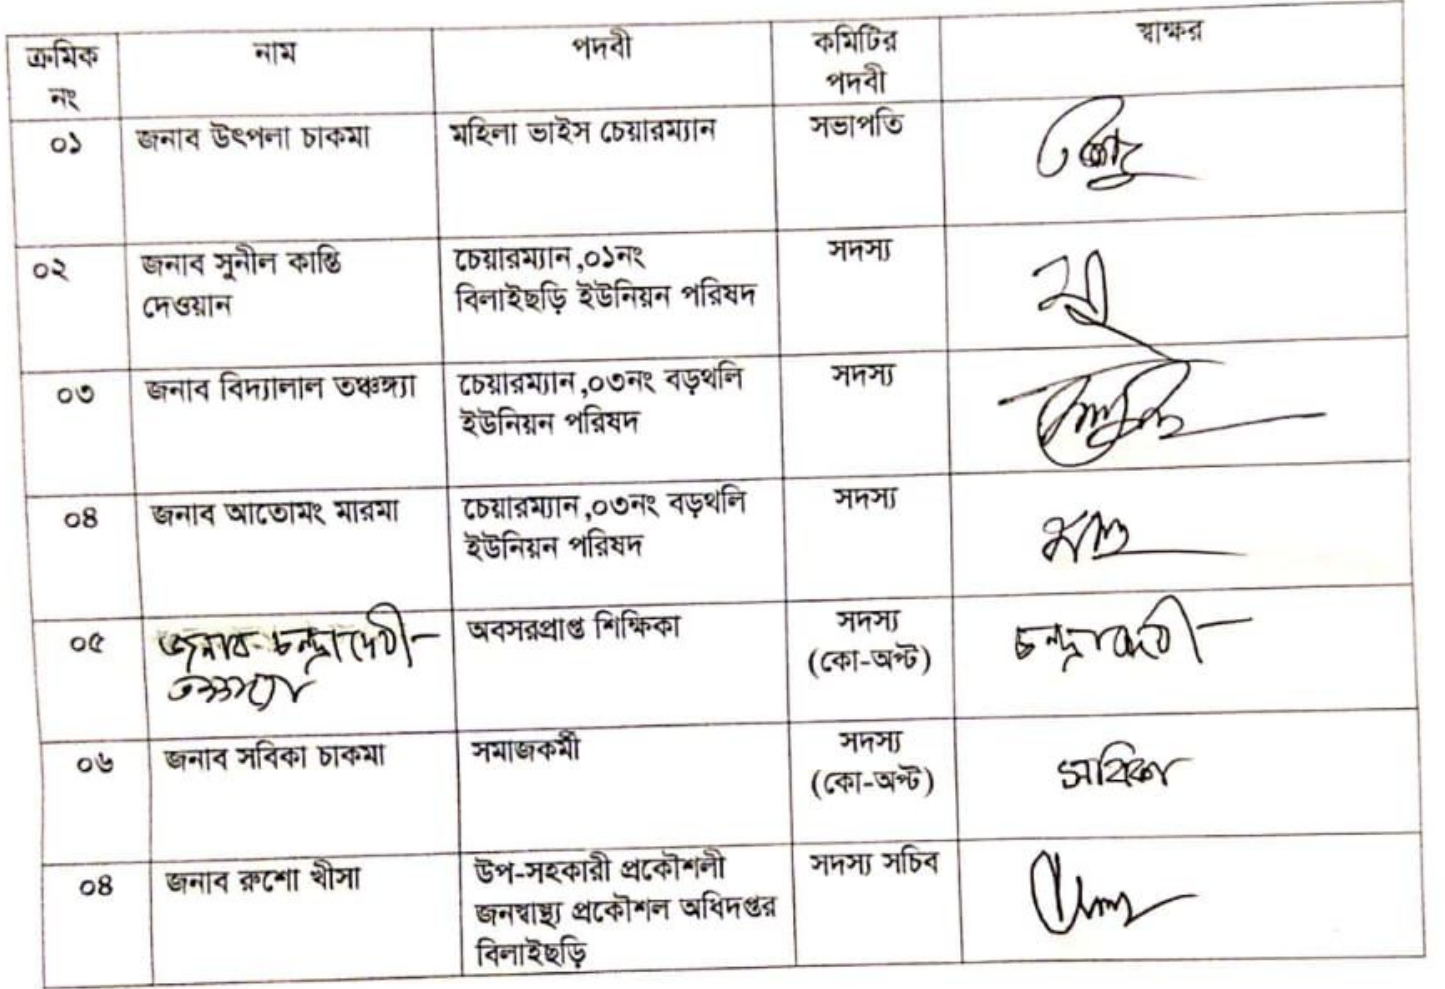 ক্রমিক নং
নাম
পদবী
কমিটির পদবী
স্বাক্ষর
০১
জনাব উৎপলা চাকমা
মহিলা ভাইস চেয়ারম্যান
সভাপতি
০২
জনাব সুনীল কান্তি
দেওয়ান
চেয়ারম্যান,০১নং
বিলাইছড়ি ইউনিয়ন পরিষদ
সদস্য
০৩
জনাব বিদ্যালাল তঞ্চঙ্গ্যা
চেয়ারম্যান,০৩নং বড়থলি
ইউনিয়ন পরিষদ
সদস্য
০৪
জনাব আতোমং মারমা
চেয়ারম্যান,০৩নং বড়থলি
ইউনিয়ন পরিষদ
সদস্য
০৫
জনাব চন্দ্রা দেবী
অবসরপ্রাপ্ত শিক্ষিকা
সদস্য
(কো-অপ্ট)
চন্দ্রা দেবী
০৬
জনাব সবিকা চাকমা
সমাজকর্মী
সদস্য
(কো-অপ্ট)
সাবিকা
০৪
জনাব রুশো খীসা
উপ-সহকারী প্রকৌশলী
জনস্বাস্থ্য প্রকৌশল অধিদপ্তর
বিলাইছড়ি
সদস্য সচিব